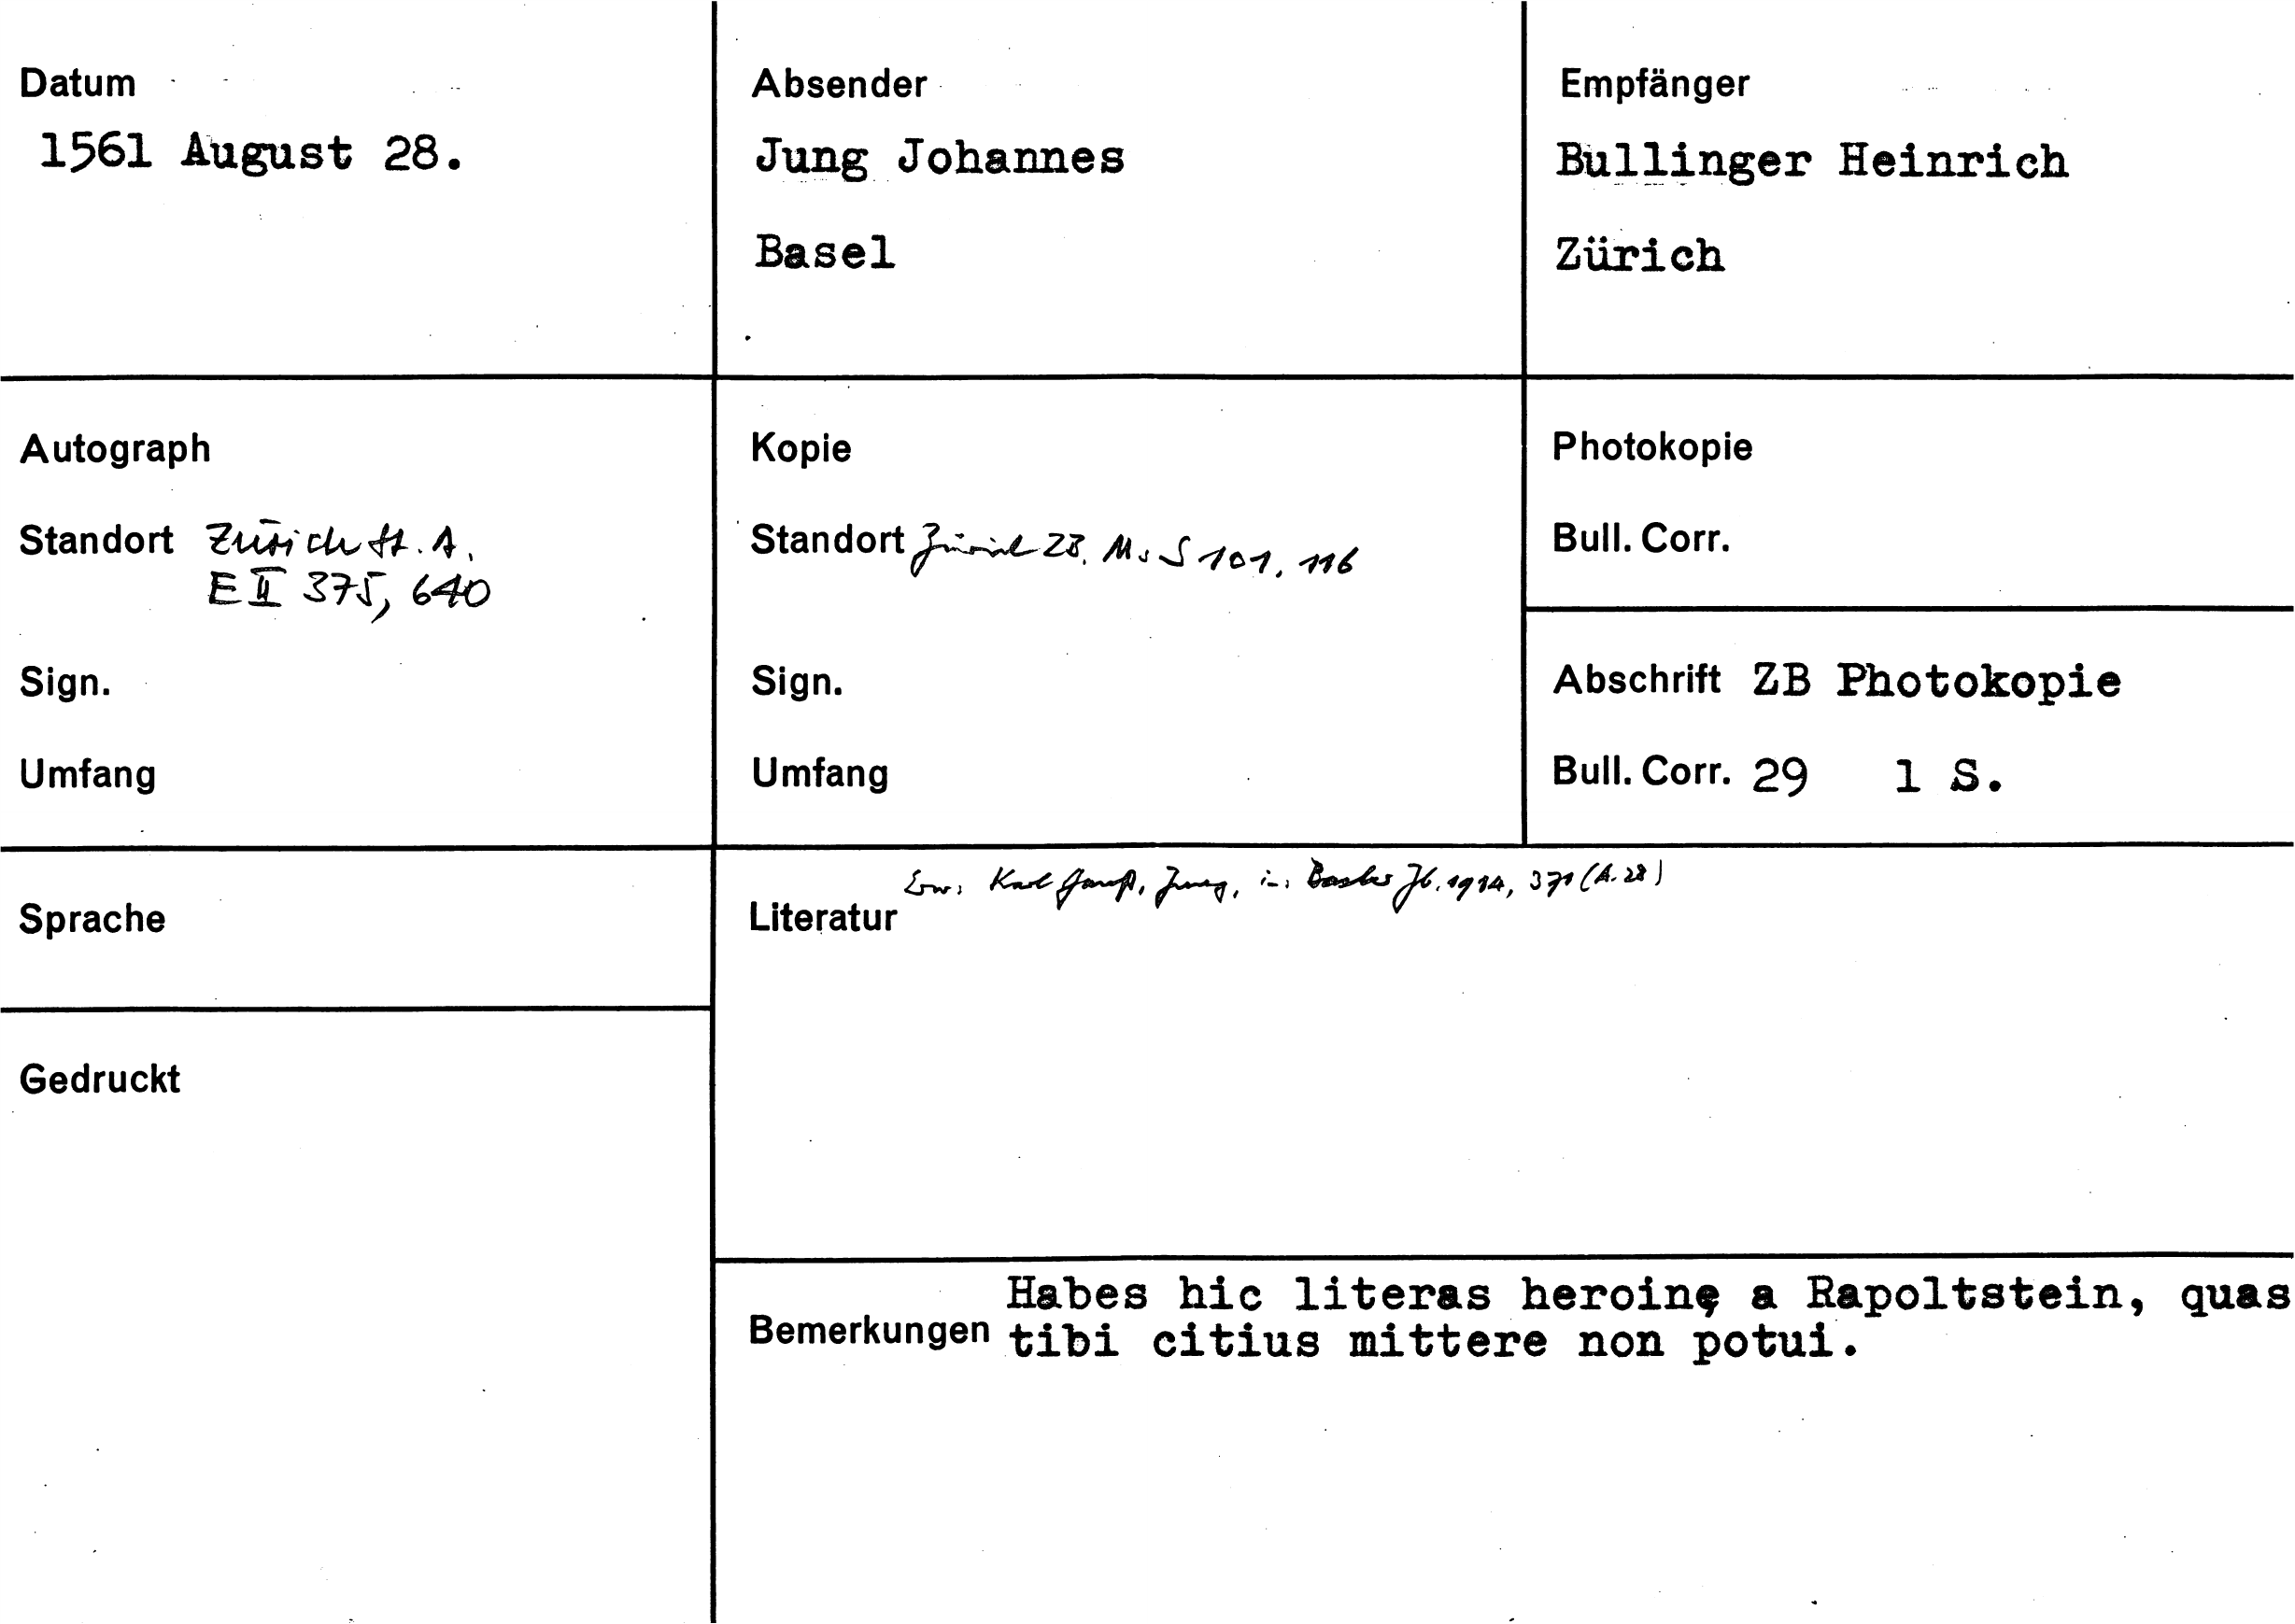 Datum
1561 August 28.
Absender
Jung Johannes
Basel
Empfänger
Bullinger Heinrich
Zürich
Autograph
Standort Zürich St. A.
E II 375, 640
Sign.
Umfang
Kopie
Standort Zürich ZB, Ms S 101, 116
Sign.
Umfang
Photokopie
Bull. Corr.
Abschrift ZB Photokopie
Bull. Corr. 29 1 S.
Sprache
Gedruckt
Erw: Karl Gauß, Jung, in: Basler Jb. 1914, 371 (A. 28)
Literatur
Habes hic literas heroinę a Rapoltstein, quas
Bemerkungen tibi citius mittere non potui.